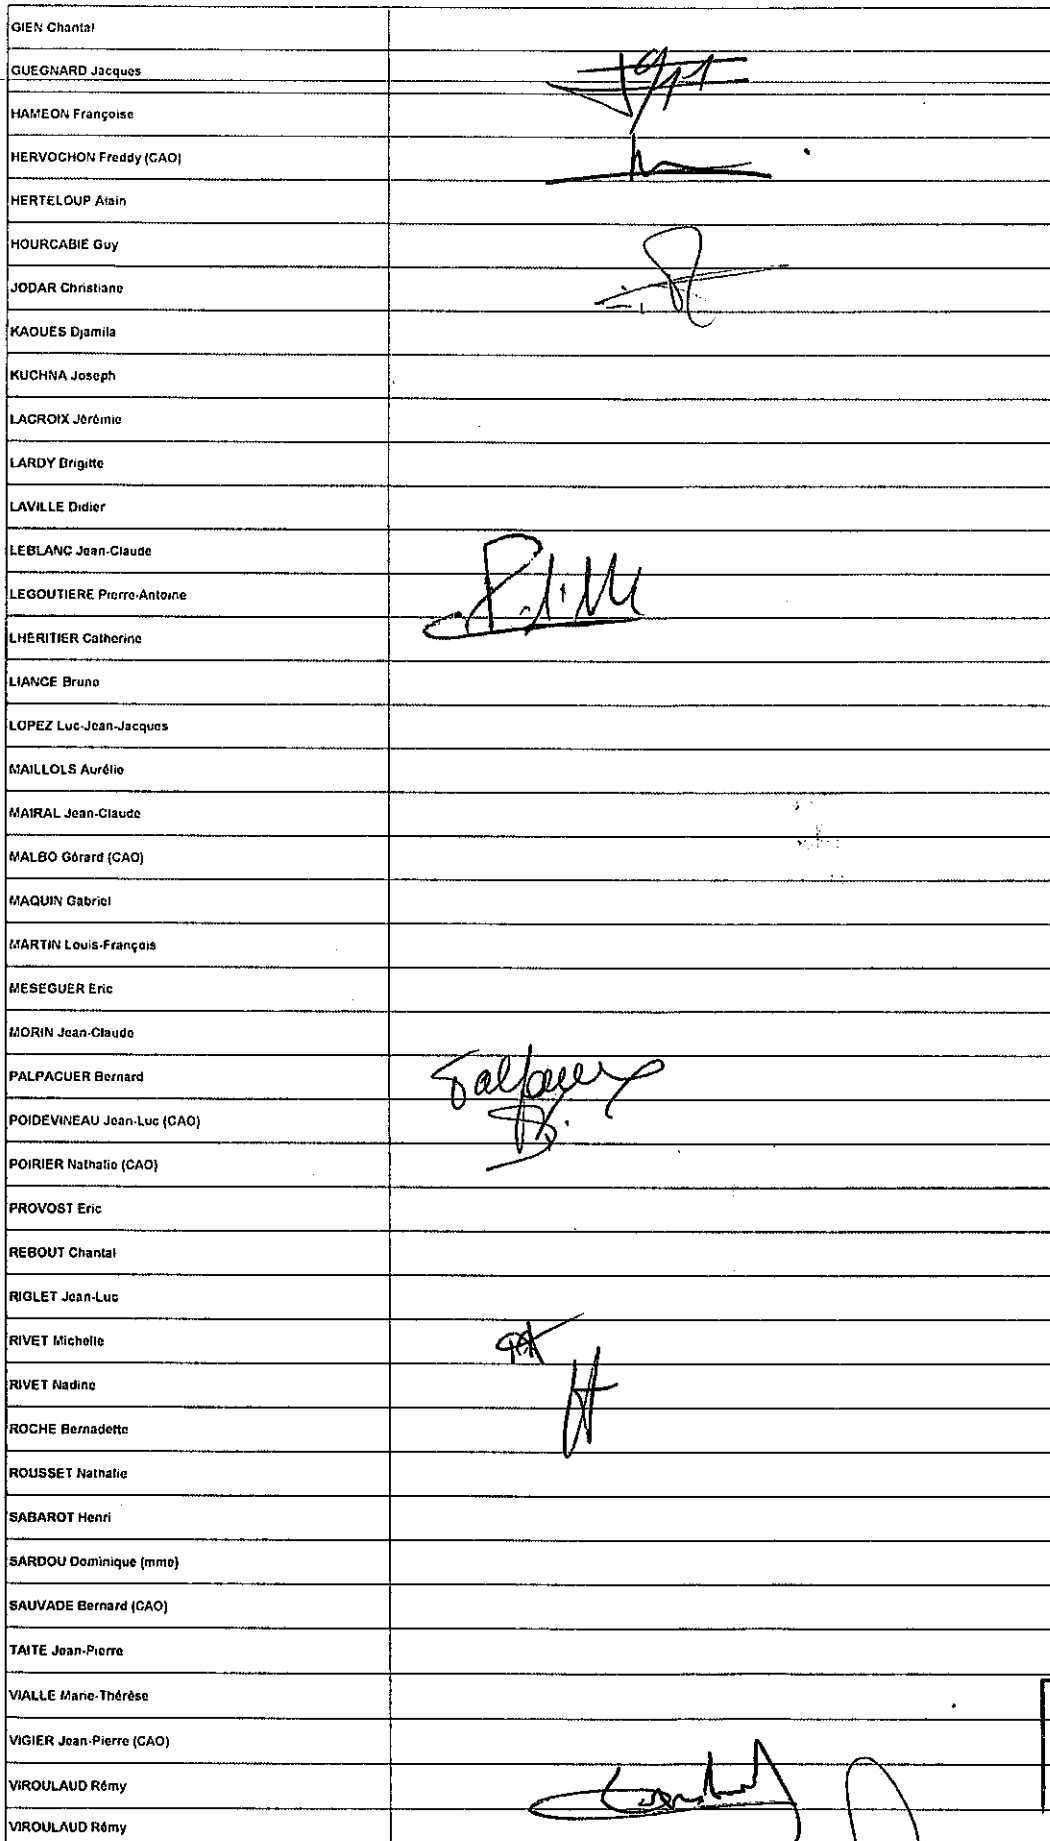 GIEN Chantal
GUEGNARD Jacques
HAMEON Françoise
HERVOCHON Freddy (CAO)
HERTELOUP Alain
HOURCABIE Guy
JODAR Christiane
KAOUES Djamila
KUCHNA Joseph
LACROIX Jérémie
LARDY Brigitte
LAVILLE Didier
LEBLANC Jean-Claude
LEGOUTIERE Pierre-Antoine
LHERITIER Catherine
LIANCE Bruno
LOPEZ Luc-Jean-Jacques
MAILLOLS Aurélie
MAIRAL Jean-Claude
MALBO Gérard (CAO)
MAQUIN Gabriel
MARTIN Louis-François
MESEGUER Eric
MORIN Jean-Claude
PALPACUER Bernard
POIDEVINEAU Jean-Luc (CAO)
POIRIER Nathalie (CAO)
PROVOST Eric
REBOUT Chantal
RIGLET Jean-Luc
RIVET Michelle
RIVET Nadine
ROCHE Bernadette
ROUSSET Nathalie
SABAROT Henri
SARDOU Dominique (mme)
SAUVADE Bernard (CAO)
TAITE Jean-Pierre
VIALLE Marie-Thérèse
VIGIER Jean-Pierre (CAO)
VIROULAUD Rémy
VIROULAUD Rémy